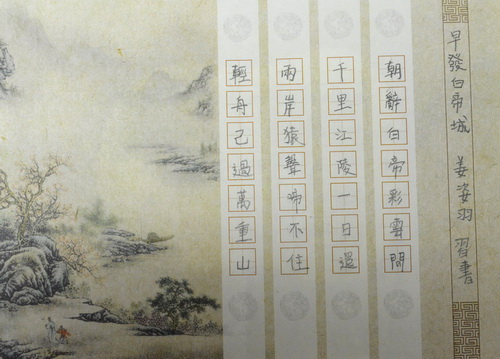 早發白帝城 姜姿羽 習書
朝辭白帝彩雲間
千里江陵一日還
兩岸猿聲啼不住
輕舟己過萬重山